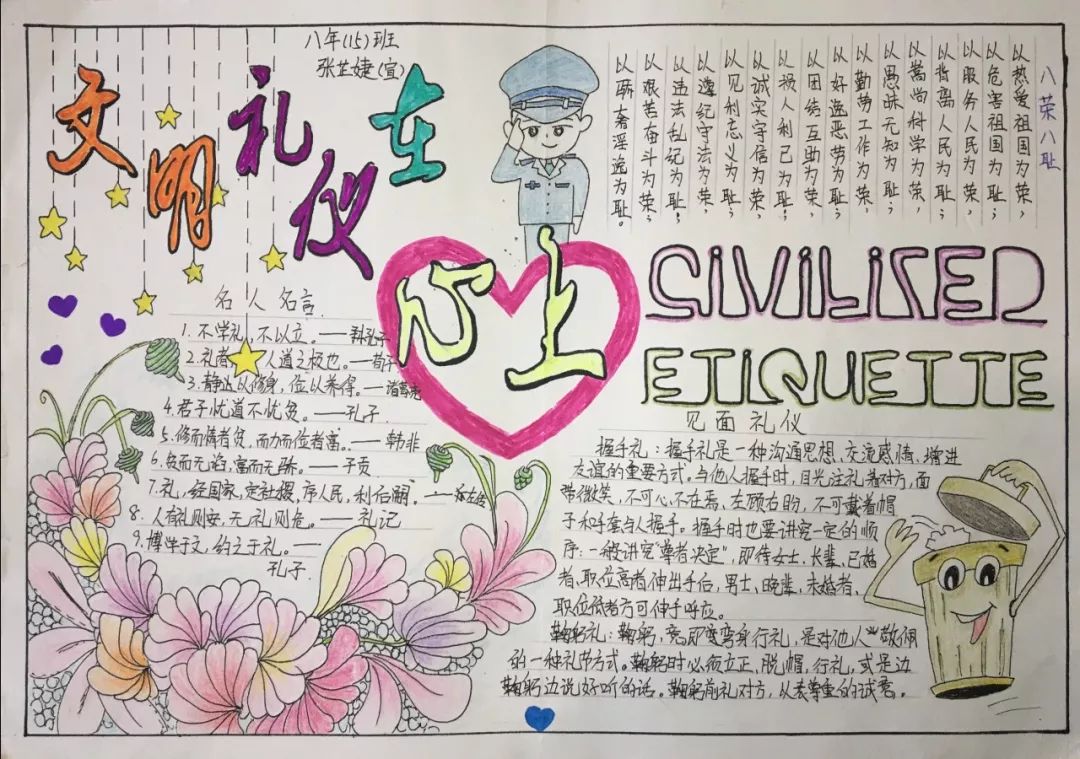 八年(15)班
张芷婕(宣)
文明礼仪在
心上
八荣八耻
以热爱祖国为荣,
以危害祖国为耻;
以服务人民为荣,
以背离人民为耻;
以崇尚科学为荣,
以愚昧无知为耻;
以勤劳工作为荣,
以好逸恶劳为耻;
以团结互助为荣,
以损人利己为耻;
以诚实守信为荣,
以见利忘义为耻;
以遵纪守法为荣,
以违法乱纪为耻;
以艰苦奋斗为荣;
以骄奢淫逸为耻。
CIVILIZED
ETIQUETTE
名人名言
1. 不学礼,不以立。——孔子
2. 礼者 人道之极也。——荀子
3. 静以修身,俭以养得。——诸葛亮
4. 君子忧道不忧贫。——孔子
5. 侈而惰者贫,而力而俭者富。——韩非
6. 贫而无谄,富而无骄。——子贡
7. 礼,经国家,定社稷,序人民,利后嗣。——左传
8. 人有礼则安,无礼则危。——礼记
9. 博学于文,约之于礼。——
孔子
见面礼仪
握手礼:握手礼是一种沟通思想、交流感情、增进
友谊的重要方式。与他人握手时,目光注礼着对方,面
带微笑,不可心不在焉、左顾右盼,不可戴着帽
子和手套与人握手。握手时也要讲究一定的顺
序:一般讲究"尊者决定",即待女士、长辈、已婚
者、职位高者伸出手后,男士、晚辈、未婚者、
职位低者方可伸手呼应。
鞠躬礼:鞠躬,意即弯弯身行礼,是对他人敬佩
的一种礼节方式。鞠躬时必须立正、脱帽,行礼,或是边
鞠躬边说好听的话。鞠躬前礼对方,以表尊重的诚意。